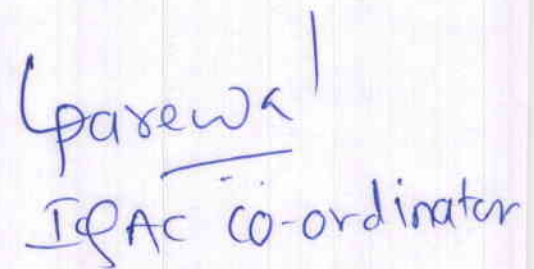 Garewal
IQAC CO-ordinator